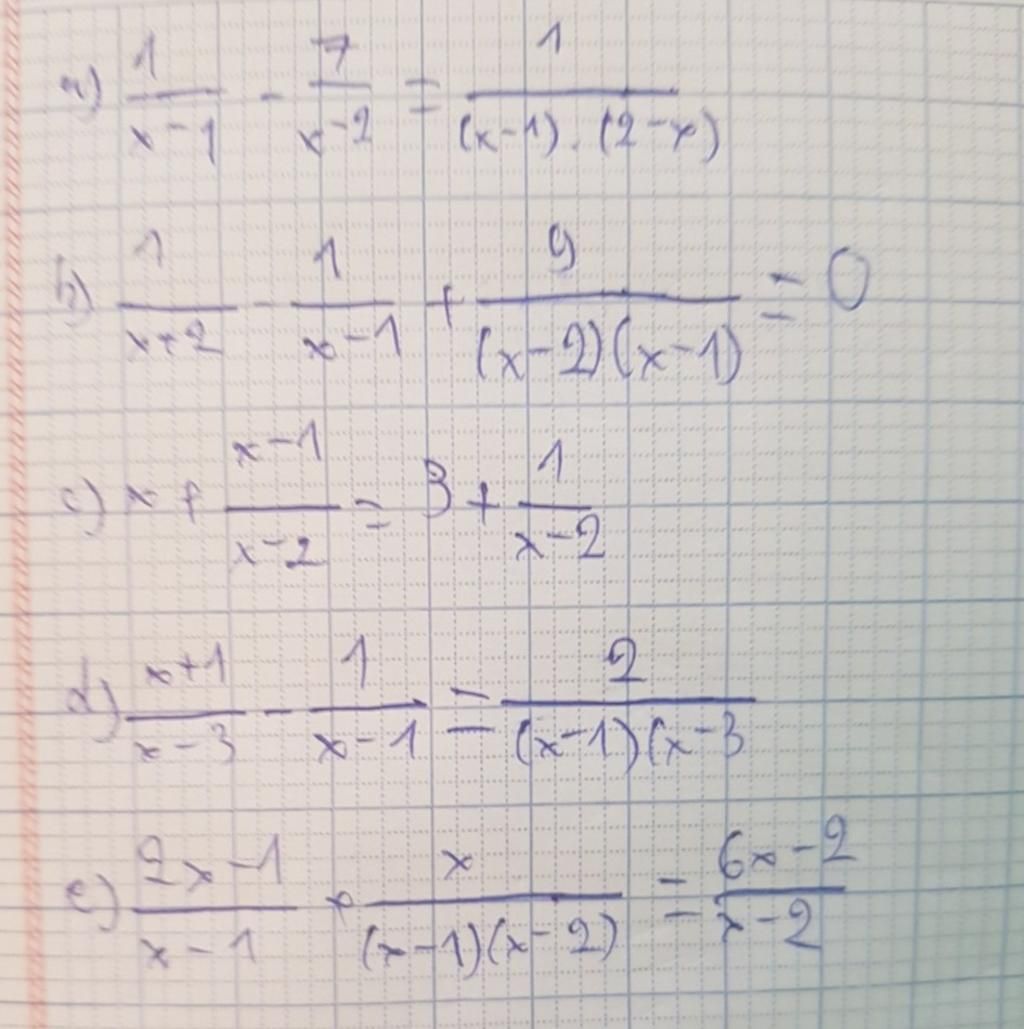 a) 1/(x-1) - 7/(x-2) = 1/((x-1).(2-x))
b) 1/(x+2) - 1/(x-1) + 9/((x-2)(x-1)) = 0
c) x + (x-1)/(x-2) = 3 + 1/(x-2)
d) (x+1)/(x-3) - 1/(x-1) = 2/((x-1)(x-3
e) (2x-1)/(x-1) + x/((x-1)(x-2)) = (6x-2)/(x-2)